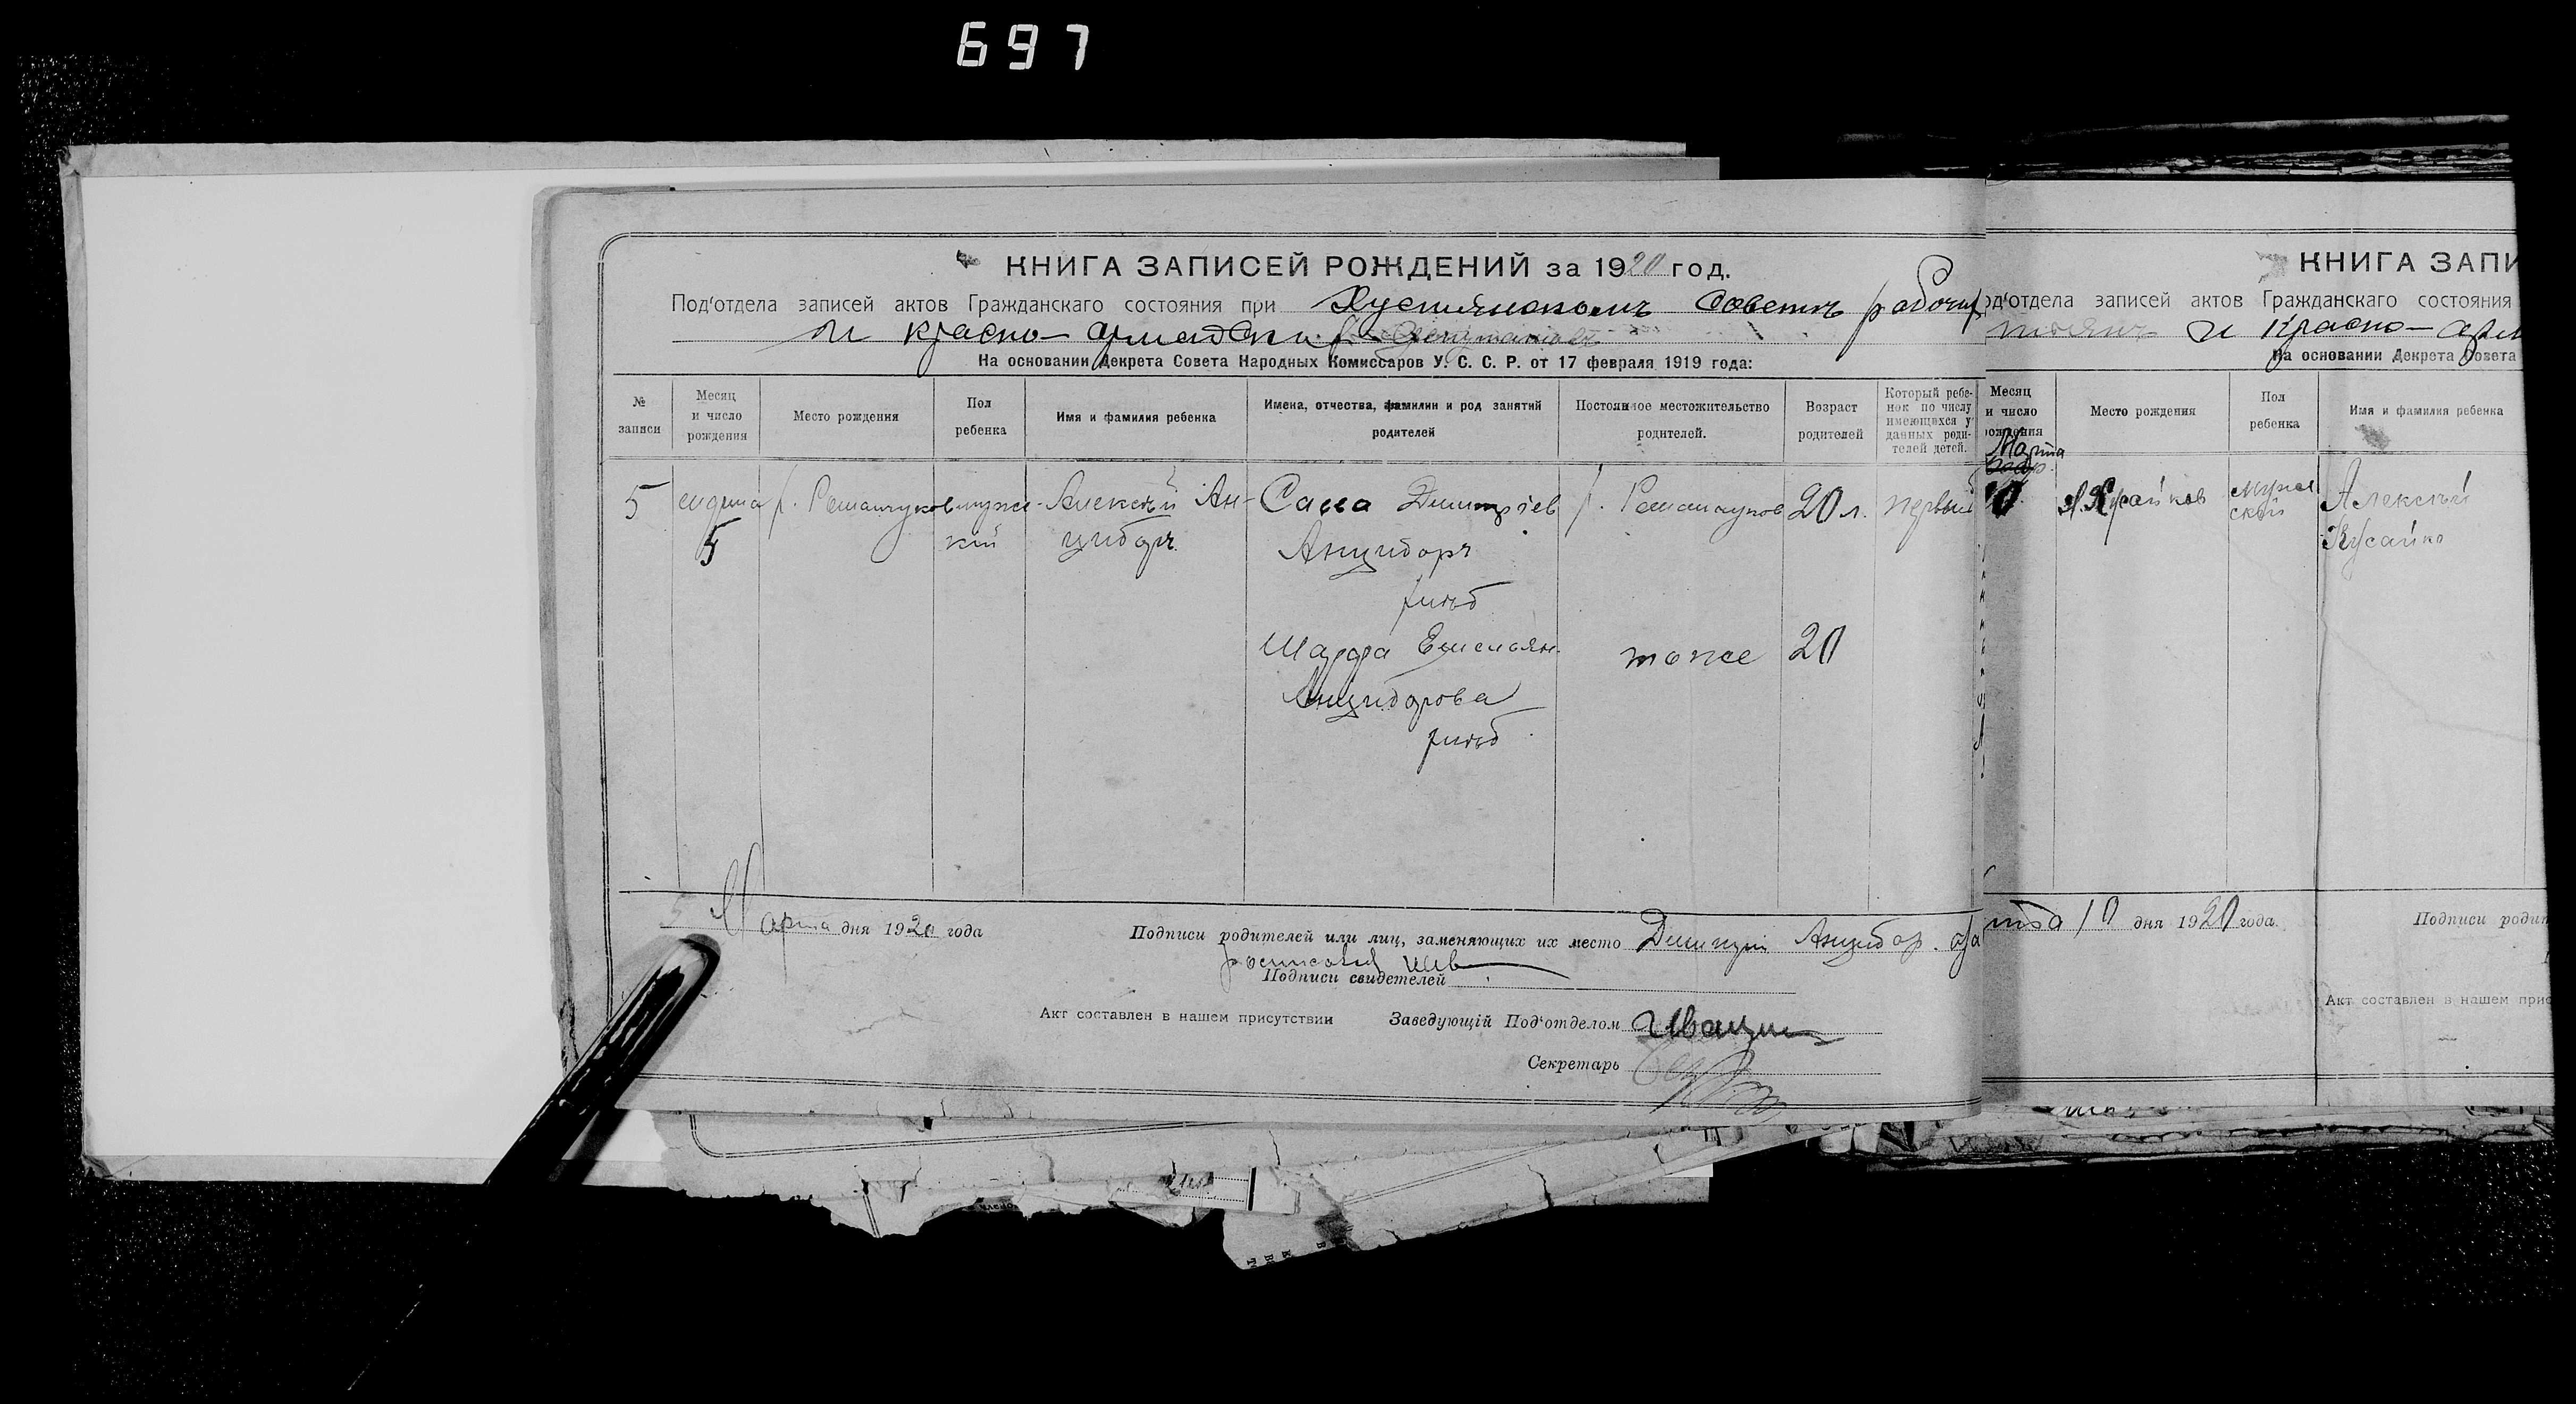 697
КНИГА ЗАПИСЕЙ РОЖДЕНИЙ за 1920 год.
Под'отдела записей актов Гражданскаго состояния при Советѣ рабочих
и красно-армейских
На основании Декрета Совета Народных Комиссаров У. С. С. Р. от 17 февраля 1919 года:
№ записи
Месяц и число рождения
Место рождения
Пол ребенка
Имя и фамилия ребенка
Имена, отчества, фамилии и род занятий родителей
Постоянное местожительство родителей.
Возраст родителей
Который ребенок по числу имеющихся у данных родителей детей.
5
марта
5
мужс-
кий
Алексѣй Ан-
цибор
Савва Дмитріев
Анцибор
хлѣб
20 л.
первый
Емельян.
Анциборова
хлѣб
тоже
20
Марта дня 1920 года
Подписи родителей или лиц, заменяющих их место Дмитрий Анцибор.
Подписи свидетелей
Акт составлен в нашем присутствии
Заведующій Под'отделом
Секретарь
КНИГА ЗАПИ
од'отдела записей актов Гражданскаго состояния
и Красно-арм
На основании Декрета Совета
Месяц и число рождения
Место рождения
Пол ребенка
Имя и фамилия ребенка
Марта
10
мужс
ской
Алексѣй
Кусайко
10 дня 1920 года.
Подписи родит
Акт составлен в нашем прис